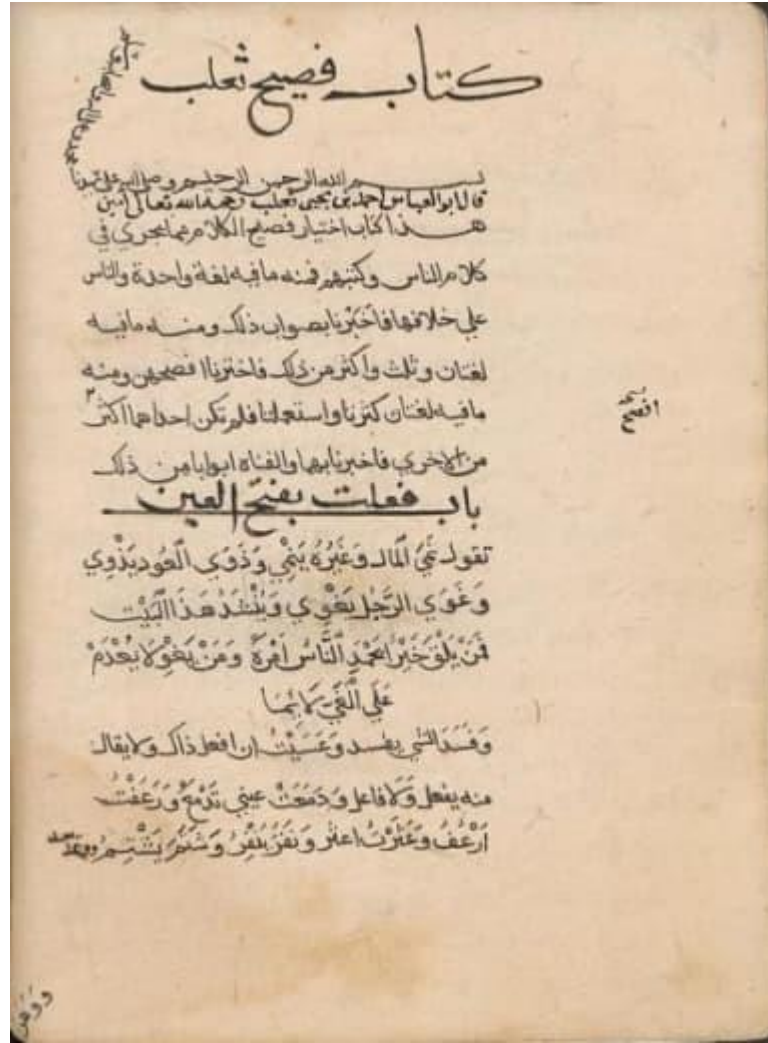 كتاب فصيح ثعلب
بسم الله الرحمن الرحيم وصلى الله على سيدنا
قال ابو العباس احمد بن يحيى ثعلب رحمه الله تعالى امين
هذا كتاب اختيار فصيح الكلام مما يجري في
كلام الناس وكتبهم فمنه ما فيه لغة واحدة والناس
علي خلافها فاخبرنا بصواب ذلك ومنه ما فيه
لغتان وثلث واكثر من ذلك فاخترنا افصحهن ومنه
ما فيه لغتان كثرتا واستعملتا فلم تكن احداهما اكثر
افصح
من الاخري فاخبرنا بهما والفناه ابوابا من ذلك
باب فعلت بفتح العين
تقول نَمَيَ اَلمال وَغَيْرُهُ يَنْمِي وَذَوَي اَلعُود يَذْوِي
وَغَوَي الرَّجُل يَغْوِي وَيُنْشَدُ هَذَا اَلْبَيْت
فَمَنْ يَلْقَ خَيْرًا يَحْمَدِ اَلنَّاسُ اَمْرَهُ وَمَنْ يَغْوِ لَا يَعْدَمْ
عَلَي اَلْغَيِّ لَائِمَا
وَفَسَدَ الشي يفسد وَعَسَيْتُ ان افعل ذاك ولا يقال
منه يفعل وَلَا فاعل وَدَمَعَتْ عيني تَدْمَعُ وَرَعَفْتُ
اَرْعُفُ وَعَثَرْتُ اعثر وَنَفَرَ يَنْفِرُ وَشَتَمَ يَشْتِمُ